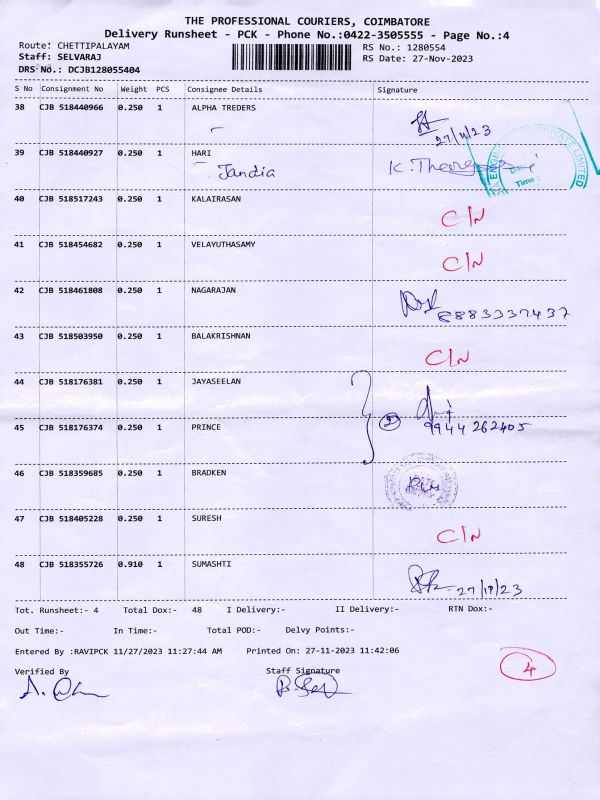 THE PROFESSIONAL COURIERS, COIMBATORE
Delivery Runsheet - PCK - Phone No.:0422-3505555 - Page No.:4
Route: CHETTIPALAYAM RS No.: 1280554
Staff: SELVARAJ RS Date: 27-Nov-2023
DRS No.: DCJB128055404
S No Consignment No Weight PCS Consignee Details Signature
38 CJB 518440966 0.250 1 ALPHA TREDERS
27/11/23
39 CJB 518440927 0.250 1 HARI
Jandia K.
ENGIN PRIVATE LIMITED
Time:
40 CJB 518517243 0.250 1 KALAIRASAN
C/N
41 CJB 518454682 0.250 1 VELAYUTHASAMY
C/N
42 CJB 518461808 0.250 1 NAGARAJAN
8883337437
43 CJB 518503950 0.250 1 BALAKRISHNAN
C/N
44 CJB 518176381 0.250 1 JAYASEELAN
45 CJB 518176374 0.250 1 PRINCE 2 9944 262405
46 CJB 518359685 0.250 1 BRADKEN
47 CJB 518405228 0.250 1 SURESH
C/N
48 CJB 518355726 0.910 1 SUMASHTI
Tot. Runsheet:- 4 Total Dox:- 48 I Delivery:- II Delivery:- RTN Dox:-
Out Time:- In Time:- Total POD:- Delvy Points:-
Entered By :RAVIPCK 11/27/2023 11:27:44 AM Printed On: 27-11-2023 11:42:06
4
Verified By Staff Signature